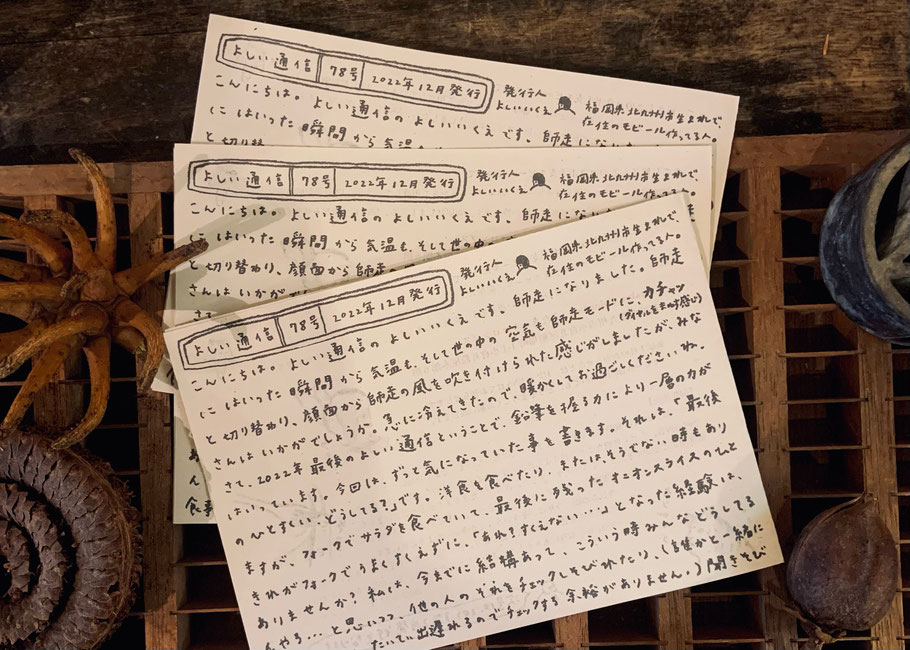 よしい通信 78号 2022年12月発行
発行人
よしいいくえ
福岡県北九州市生まれで、
在住のモビール作ってる人。
こんにちは。よしい通信のよしいいくえです。師走になりま
にはいった瞬間から気温
と切り替
よしい通信 78号 2022年12月発行
発行人
よしいいくえ
福岡県北九州市生まれで、
在住のモビール作ってる人。
こんにちは。よしい通信のよしいいくえです。師走になり
にはいった瞬間から気温も、そして世の中の
と切り替わり、顔面から師走の
さんはいかがで
さて
食事
よしい通信 78号 2022年12月発行
発行人
よしいいくえ
福岡県北九州市生まれで、
在住のモビール作ってる人。
こんにちは。よしい通信のよしいいくえです。師走になりました。師走
にはいった瞬間から気温も、そして世の中の空気も師走モードに、ガチャン
(ダイヤルをまわす感じ)
と切り替わり、顔面から師走の風を吹き付けられた感じがしましたが、みな
さんはいかがでしょうか。急に冷えてきたので、暖かくしてお過ごしくださいね。
さて、2022年最後のよしい通信ということで、鉛筆を握る力により一層の力が
はいっています。今回は、ずっと気になっていた事を書きます。それは、「最後
のひとすくい、どうしてる?」です。洋食を食べたり、またはそうでない時もあり
ますが、フォークでサラダを食べていて、最後に残ったオニオンスライスのひと
きれがフォークでうまくすくえずに、「あれ?すくえない…」となった経験は、
ありませんか?私は、今までに結構あって、こういう時みんなどうしてる
んやろ…と思いつつ、他の人のそれをチェックしそびれたり、(誰かと一緒に
たいてい出遅れるのでチェックする余裕がありません。)聞きそび